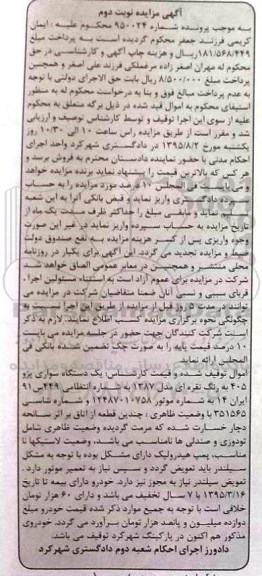 آگهی مزایده نوبت دوم
به موجب پرونده شماره ۹۵۰۰۲۴ محکوم علیه: ایمان
کریمی فرزند جعفر محکوم گردیده است به پرداخت مبلغ
۱۸۱/۵۶۸/۴۴۹ ریال و هزینه چاپ آگهی و کارشناسی در حق
محکوم له مهران اصغر زاده مرغملکی فرزند علی اصغر و همچنین
پرداخت مبلغ ۸/۵۰۰/۰۰۰ ریال بابت حق الاجرای دولتی با توجه
به عدم پرداخت مبالغ فوق و بنا به درخواست محکوم له به منظور
استیفای محکوم به اموال قید شده در ذیل برگه متعلق به محکوم
علیه از سوی این اجرا توقیف و توسط کارشناس توصیف و ارزیابی
شد و مقرر است از طریق مزایده راس ساعت ۱۰ الی ۱۰/۳۰ روز
یکشنبه مورخ ۱۳۹۵/۸/۲ در دادگستری شهرکرد واحد اجرای
احکام مدنی با حضور نماینده دادستان محترم به فروش برسد و
هر کس که بالاترین قیمت را پیشنهاد نماید برنده مزایده خواهد
و می بایست فی المجلس ۱۰ درصد مورد مزایده را به حساب
سپرده دادگستری واریز نماید و قبض بانکی آنرا به این شعبه
نماید و مابقی مبلغ را حداکثر ظرف مدت یک ماه از
تاریخ مزایده به حساب سپرده واریز نماید در غیر این صورت
وجوه واریزی پس از کسر هزینه مزایده به نفع صندوق دولت
ضبط و مزایده تجدید می گردد. این آگهی برای یکبار در روزنامه
محلی منتشر و همچنین در معابر عمومی الصاق خواهد شد
شرکت در مزایده برای عموم آزاد است به استثناء مسئولین اجرا و
قربای سببی و نسبی آنان ضمنا متقاضیان شرکت در مزایده می
توانند به مدت ۵ روز قبل از مزایده از طریق این اجرا نسبت به
چگونگی نحوه برگزاری مزایده کسب اطلاع نمایند. لازم به ذکر
است شرکت کنندگان جهت حضور در جلسه مزایده می بایست
۱۰ درصد قیمت پایه را به صورت چک تضمین شده بانکی فی
المجلس ارائه نماید.
اموال توقیف شده و قیمت کارشناس یک دستگاه سواری پژو
۴۰۵ به رنگ نقره ای مدل ۱۳۸۷ به شماره انتظامی ۴۴۹س۹۱
ایران ۱۴ به شماره موتور ۱۲۴۸۷۰۱۰۷۵۸ و شماره شاسی
۳۵۱۵۶۵ با وضعیت ظاهری: چندین قطعه از اتاق بر اثر سانحه
دچار خسارت شده که مرمت گردیده وضعیت ظاهری شامل
تودوزی و صندلی ها نامناسب می باشد، وضعیت لاستیکها نا
مناسب، پمپ هیدرولیک دارای مشکل بوده با توجه به مشکل
سیلندر باید تعویض گردد و سپس نیاز به تعمیر موتور دارد.
تعویض سیلندر نیاز به مجوز نیز دارد. خودرو دارای بیمه تا تاریخ
۱۳۹۵/۳/۱۶ با ۷ سال تخفیف می باشد و دارای ۶۰ هزار تومان
خلافی است با توجه به جمیع موارد ذکر شده قیمت خودرو مبلغ
دوازده میلیون و پانصد هزار تومان برآورد می گردد. خودروی
مذکور هم اکنون در پارکینگ شهرکرد توقیف می باشد.
دادورز اجرای احکام شعبه دوم دادگستری شهرکرد